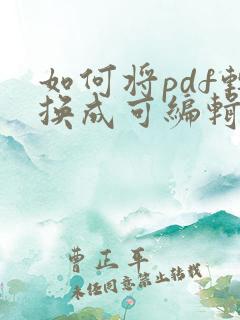 如何将pdf转
换成可编辑
曹正平
未经同意禁止转载